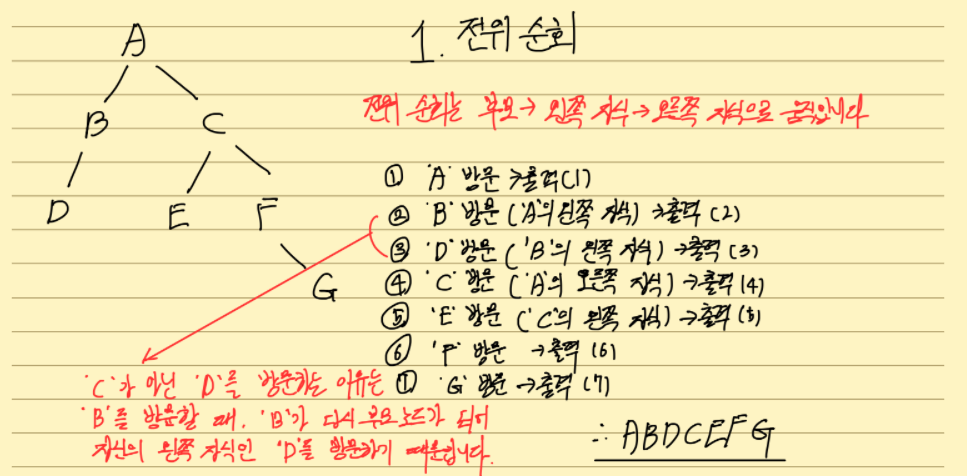 1. 전위 순회
A
B C
D E F
G
전위 순회는 부모→ 왼쪽 자식→오른쪽 자식으로 움직입니다
① 'A' 방문 →출력(1)
② 'B' 방문 ('A'의 왼쪽 자식) →출력 (2)
③ 'D' 방문 ('B'의 왼쪽 자식) →출력 (3)
④ 'C' 방문 ('A'의 오른쪽 자식) →출력 (4)
⑤ 'E' 방문 ('C'의 왼쪽 자식) →출력 (5)
⑥ 'F' 방문 →출력 (6)
⑦ 'G' 방문 →출력 (7)
'C'가 아닌 'D'를 방문하는 이유는
'B'를 방문할 때, 'B'가 다시 부모노드가 되어
자신의 왼쪽 자식인 'D'를 방문하기 때문입니다.
∴ ABDCEFG